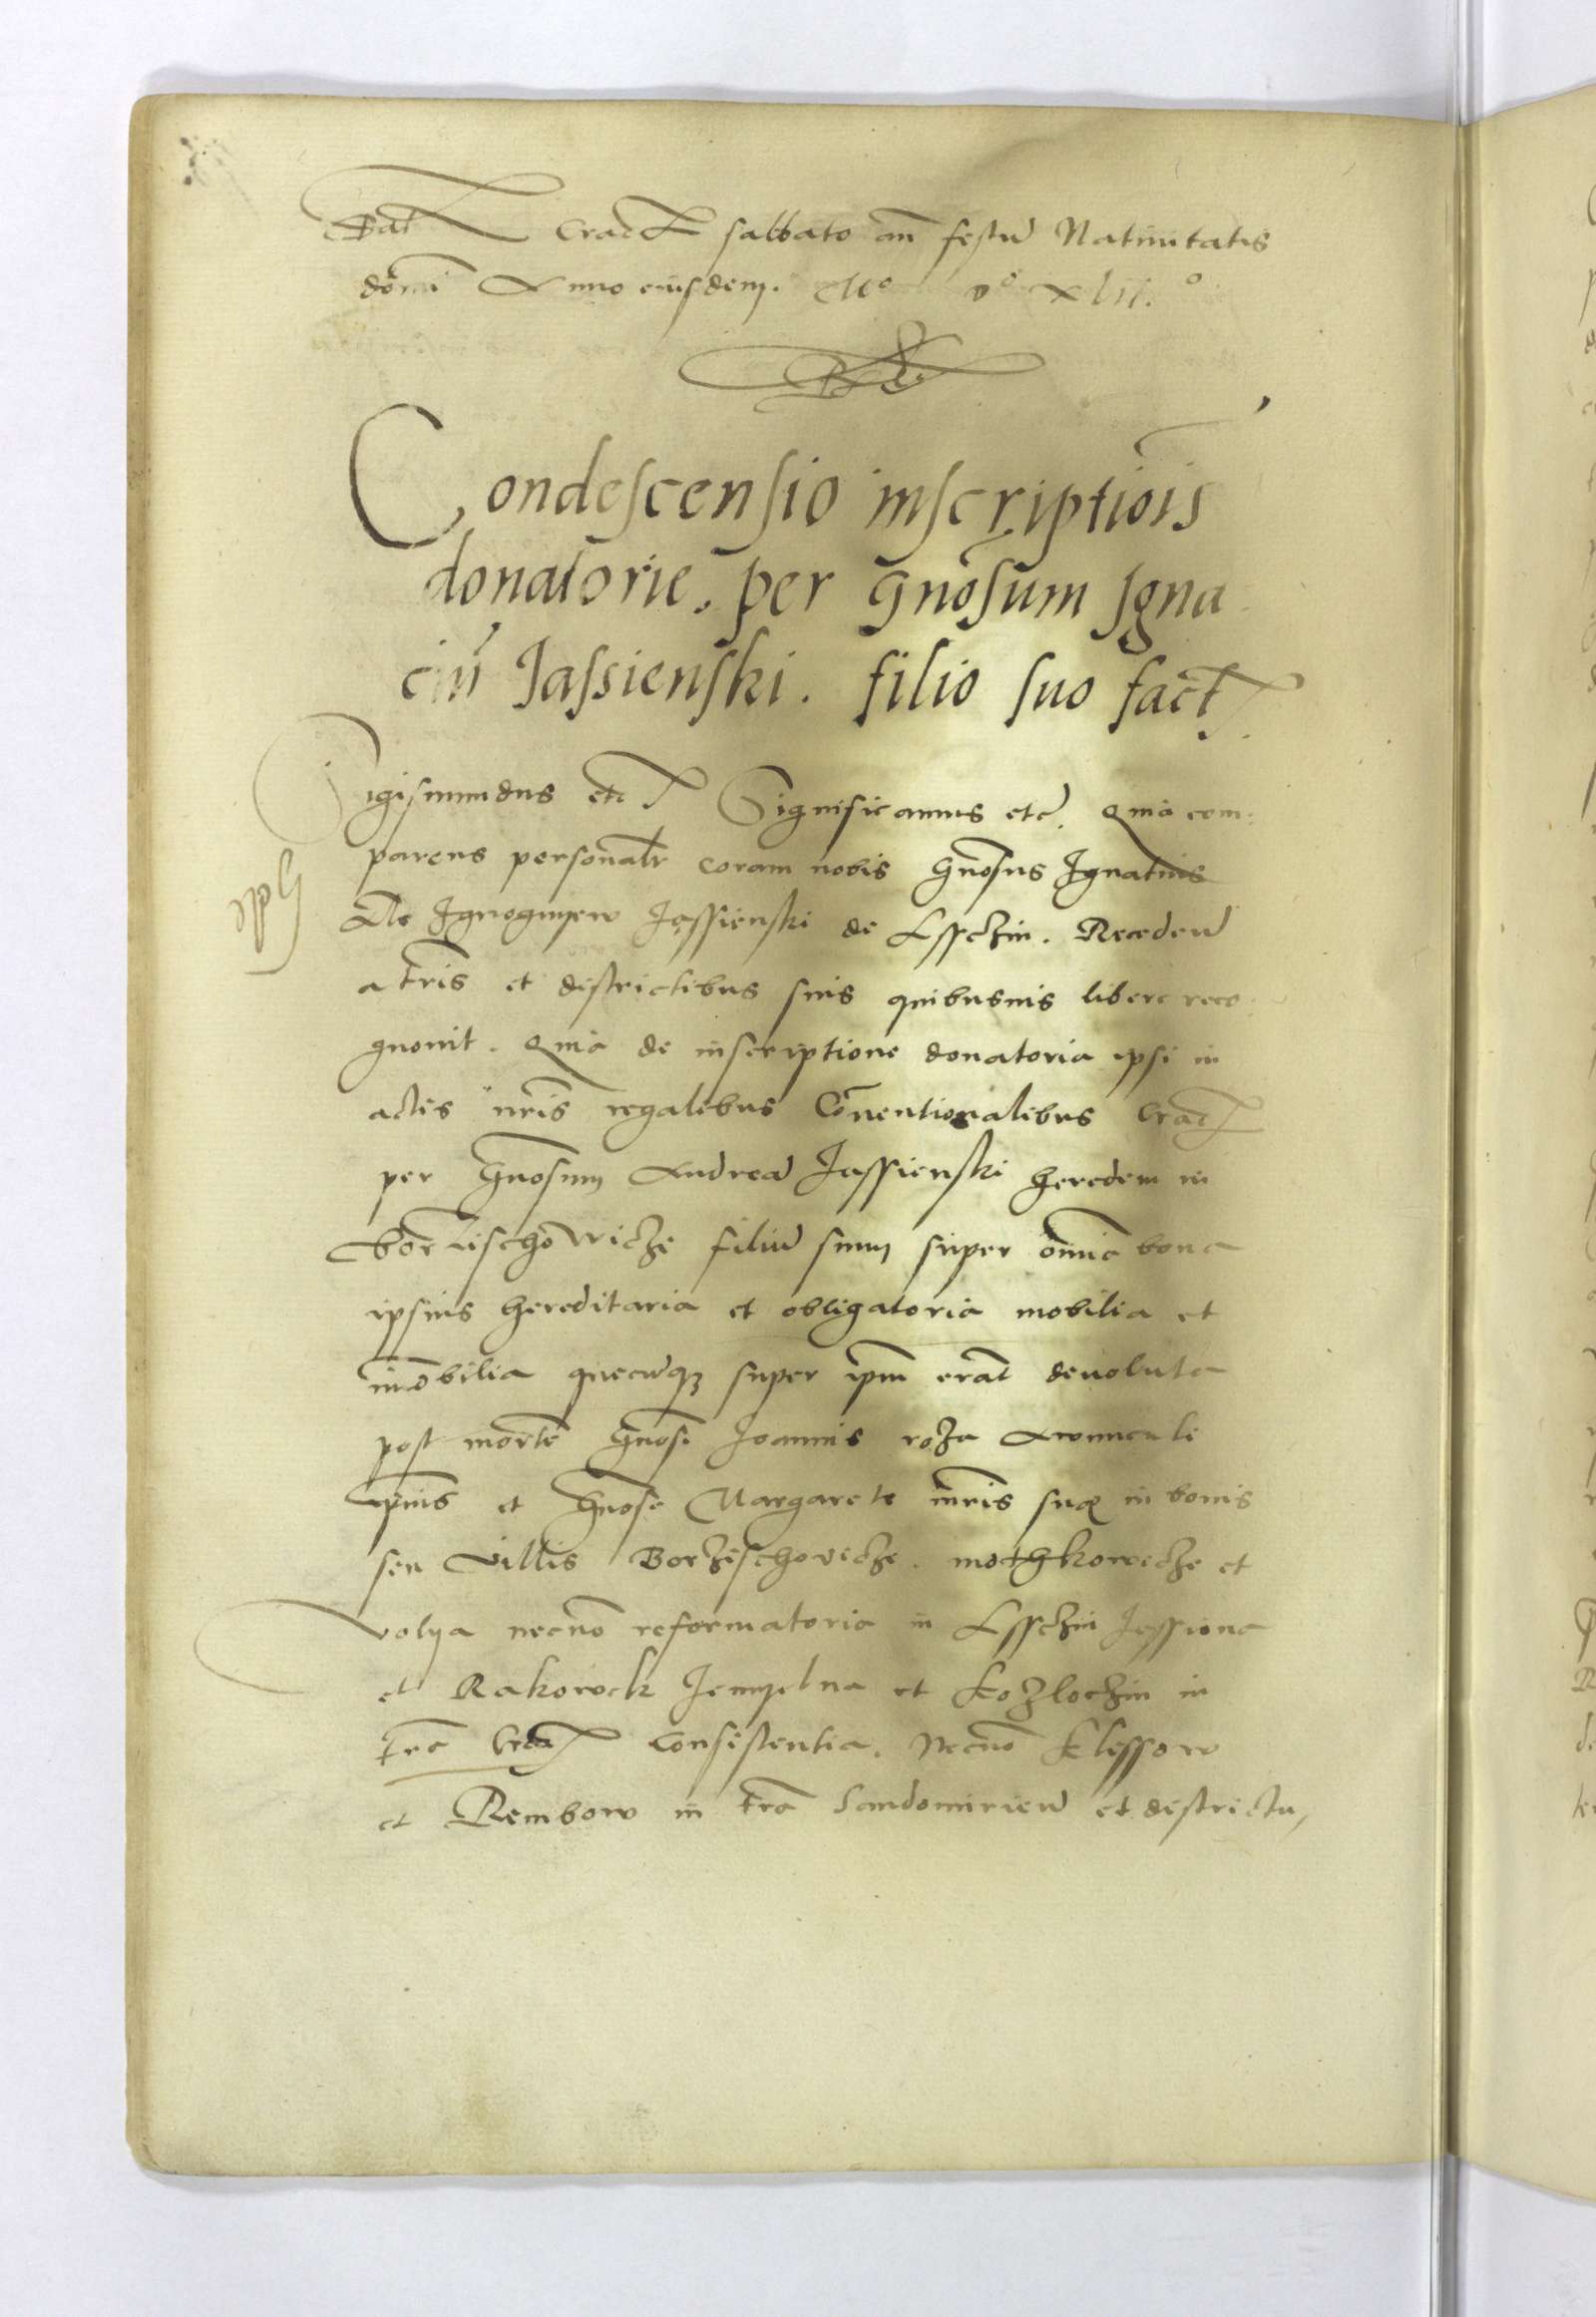 Dat Crac sabbato an festu Natiuitatis
domi Anno eiusdem. Mo vo xlii.o
Condescensio inscriptiois
donatorie. per gnosum Igna
ciu Jassienski. filio suo fact.
Sigismundus etc Significamus etc. Quia com
parens personalr coram nobis Gnosus Ignatius
de Jassienski de Lssczin. Recedend
a tris et districtibus suis quibusuis libere reco
gnouit. Quia de inscriptione donatoria ipsi in
actis nris regalibus Conuentionalibus Crac
per Gnosum Andrea Jassienski heredem in
Borzischowicze filiu suum super omnia bona
ipsius hereditaria et obligatoria mobilia et
imobilia quecuqz super ipm erat deuoluta
post morte Gnosi Joannis roza Awunculi
ipius et Gnose Margarete mris sue in bonis
seu villis Borzischovicze. mothkowicze et
volya necno reformatoria in Lssczin Jassiona
et Rakowek Jemyelna et Kozloczin in
tra Crac consistentia. Necno Klessow
et Rembow in tra Sandomirien et districtu,